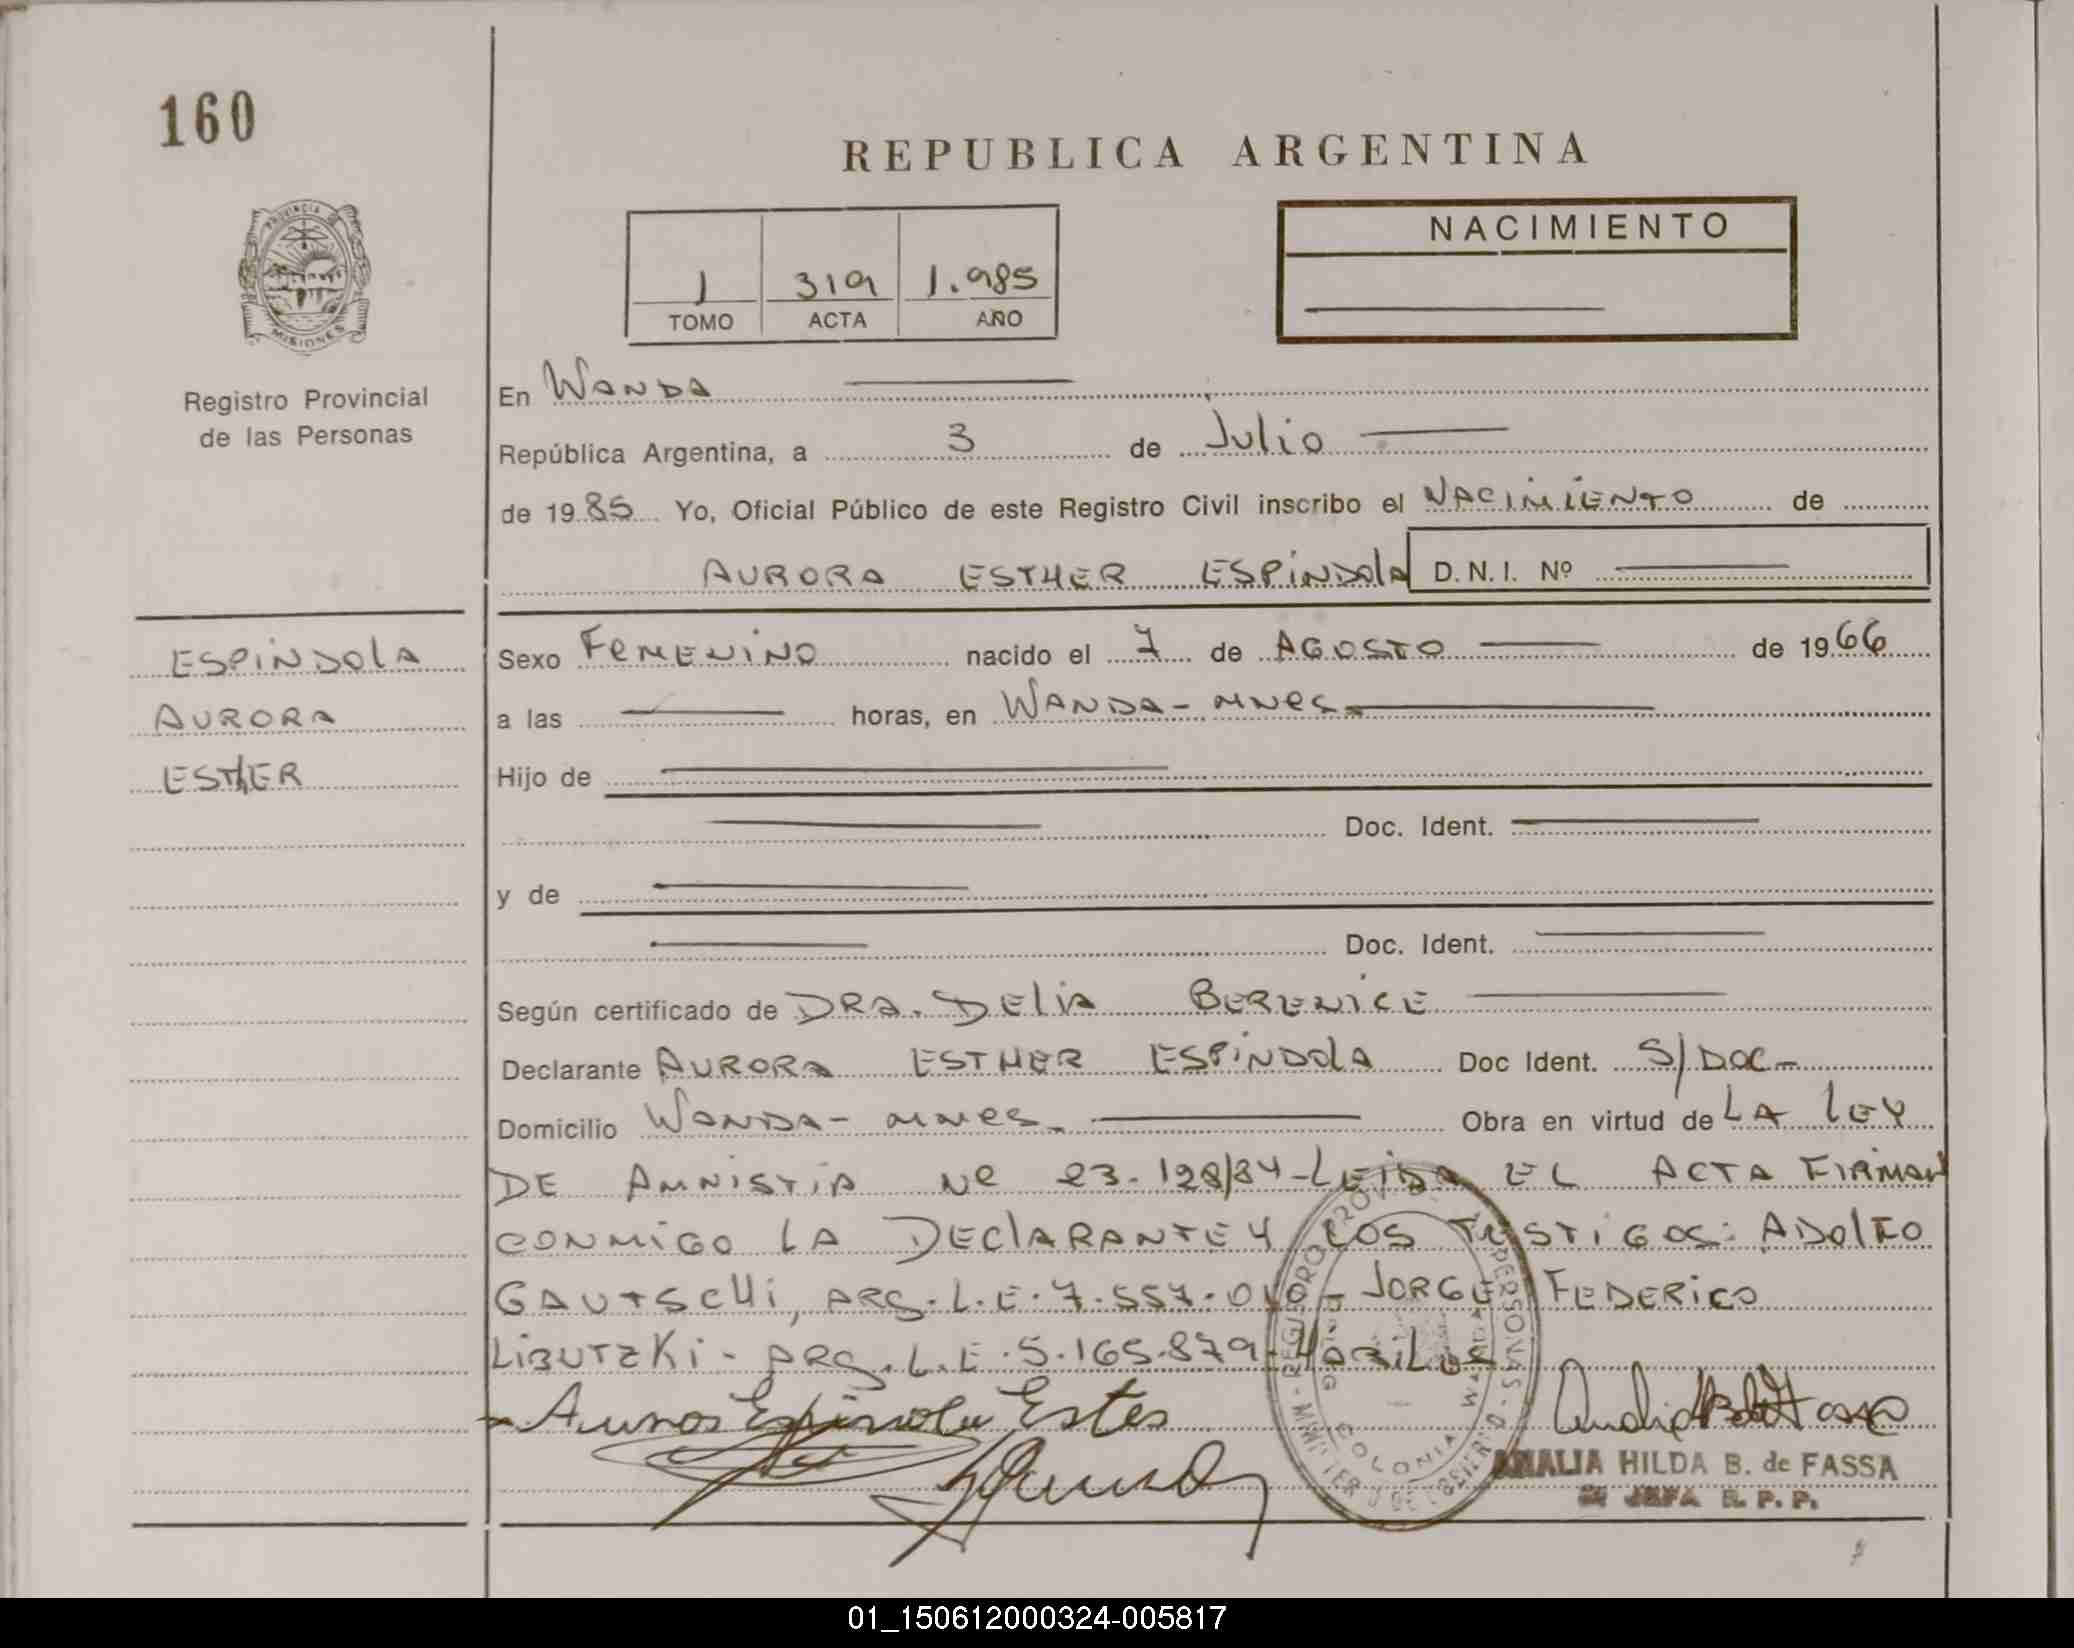 160
REPUBLICA ARGENTINA
NACIMIENTO
1 319 1.985
TOMO ACTA AÑO
PROVINCIA DE MISIONES
Registro Provincial
de las Personas
En WANDA
República Argentina, a 3 de Julio
de 1985 Yo, Oficial Público de este Registro Civil inscribo el NACIMIENTO de
AURORA ESTHER ESPINDOLA D.N.I. Nº
ESPINDOLA
AURORA
ESTHER
Sexo FEMENINO nacido el 7 de AGOSTO de 1966
a las horas, en WANDA - MNES.
Hijo de
Doc. Ident.
y de
Doc. Ident.
Según certificado de DRA. DELIA BERENICE
Declarante AURORA ESTHER ESPINDOLA Doc Ident. S/DOC-
Domicilio WANDA - MNES. Obra en virtud de LA LEY
DE AMNISTIA Nº 23.128/84 - LEIDA EL ACTA FIRMAN
CONMIGO LA DECLARANTE Y LOS TESTIGOS: ADOLFO
GAUTSCHI, ARG. L.E. 7.557.010 - JORGE FEDERICO
LIBUTZKI - ARG. L.E. 5.165.879 - HÁBILES
Espinola Estes
AMALIA HILDA B. de FASSA
JEFA R. P. P.
01_150612000324-005817